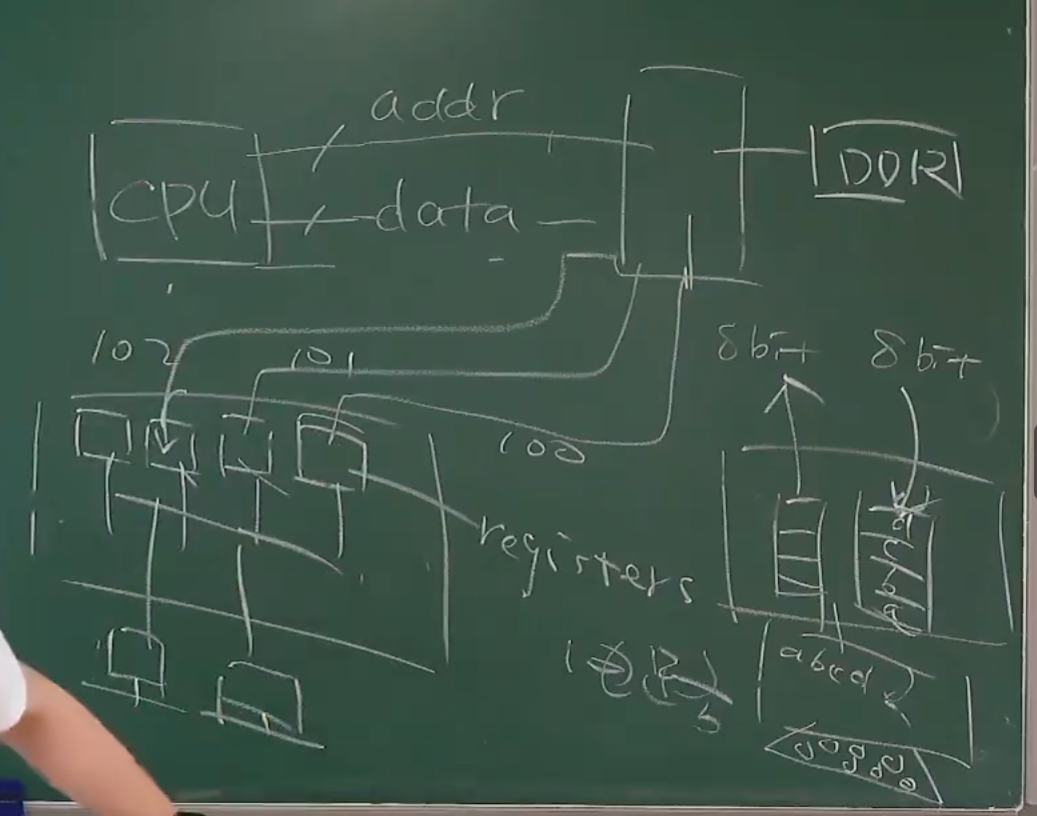 addr
CPU
data
DDR
102
101
100
8bit
8bit
registers
d
c
b
a
abcd